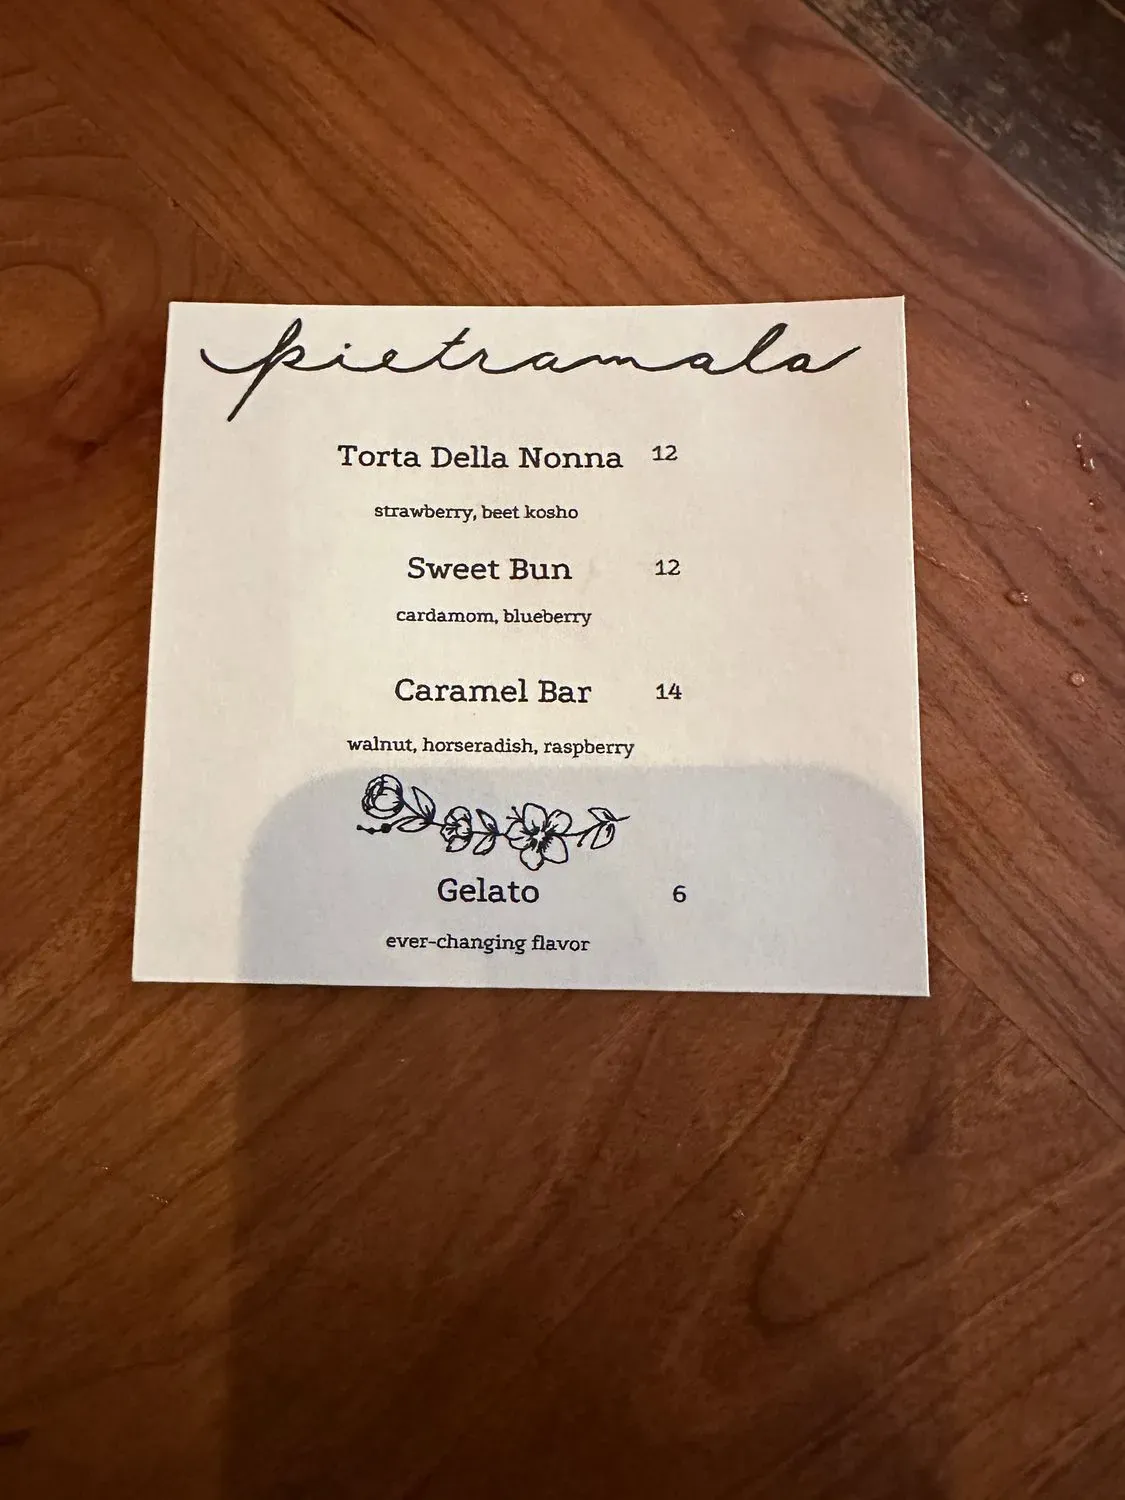 pietramala
Torta Della Nonna 12
strawberry, beet kosho
Sweet Bun 12
cardamom, blueberry
Caramel Bar 14
walnut, horseradish, raspberry
Gelato 6
ever-changing flavor